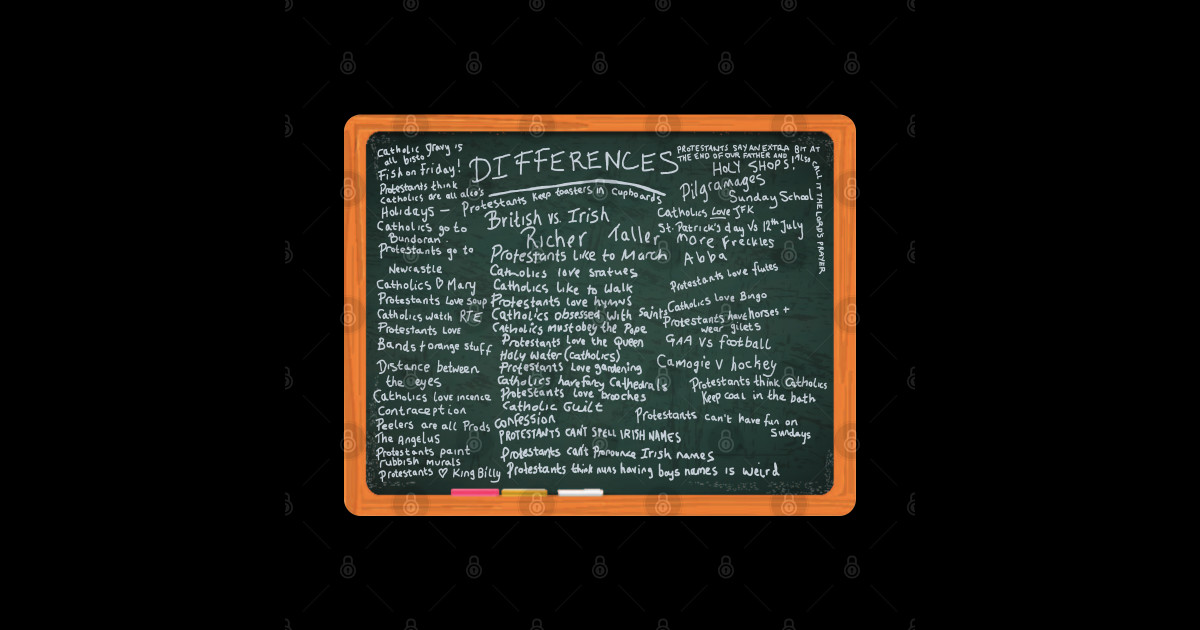 DIFFERENCES
Catholic gravy is
all bisto
Fish on Friday!
Protestants think
Catholics are all alco's
Holidays —
Catholics go to
Bundoran.
Protestants go to
Newcastle
Catholics ♡ Mary
Protestants Love soup
Catholics watch RTE
Protestants Love
Bands + orange stuff
Distance between
the eyes
Catholics love incence
Contraception
Peelers are all Prods
The Angelus
Protestants paint
rubbish murals
Protestants ♡ King Billy
Protestants keep toasters in cupboards
British vs. Irish
Richer Taller
Protestants like to March
Catholics love statues
Catholics like to walk
Protestants love hymns
Catholics obsessed with saints
Catholics must obey the Pope
Protestants love the Queen
Holy water (catholics)
Protestants Love gardening
Catholics have fancy Cathedrals
Protestants love brooches
Catholic Guilt
Confession
PROTESTANTS CAN'T SPELL IRISH NAMES
Protestants can't Pronounce Irish names
Protestants think nuns having boys names is weird
PROTESTANTS SAY AN EXTRA BIT AT
THE END OF OUR FATHER AND
ALSO CALL IT THE LORD'S PRAYER
HOLY SHOPS!
Pilgramages
Sunday School
Catholics Love JFK
St. Patrick's day Vs 12th July
More Freckles
Abba
Protestants love flutes
Catholics love Bingo
Protestants have horses +
wear gilets
GAA Vs football
Camogie V hockey
Protestants think Catholics
Keep coal in the bath
Protestants can't have fun on
Sundays